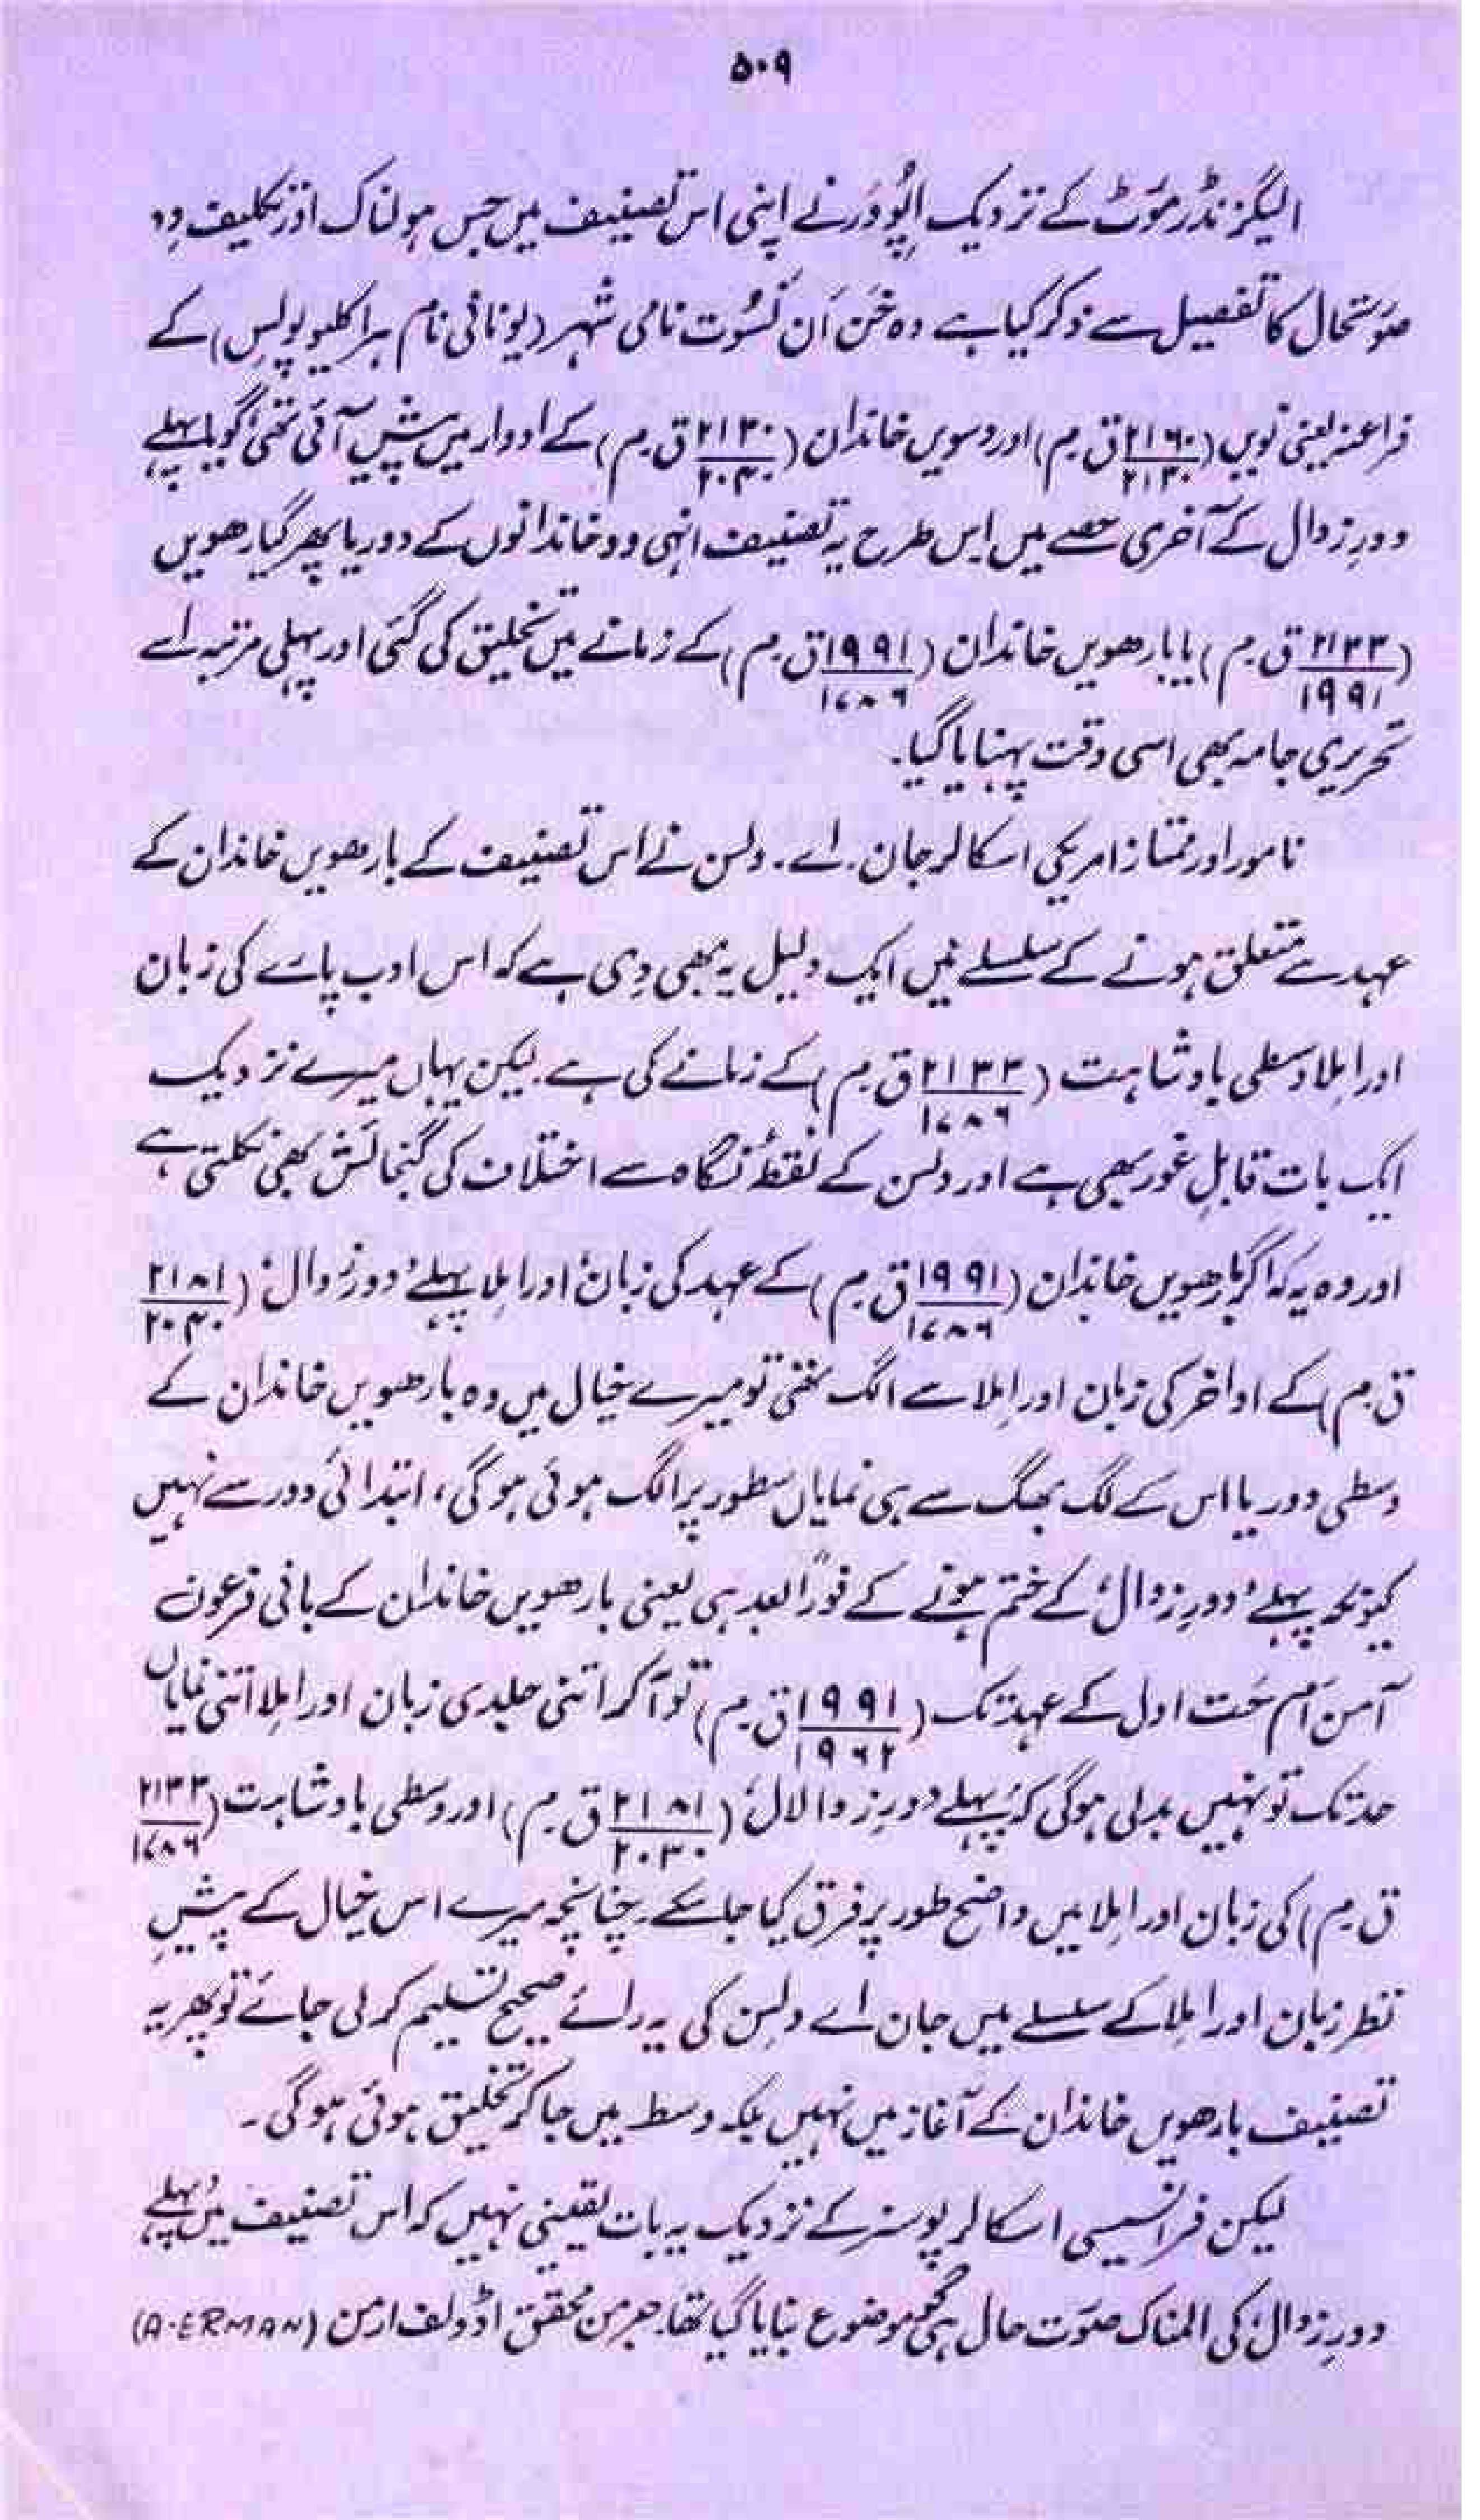 ۵۰۹
الیگزنڈر موَٹ کے نزدیک اِپُووَر نے اپنی اس تصنیف میں جس ہولناک اور تکلیف دِہ
صوَرتحال کا تفصیل سے ذکر کیا ہے وہ خَنَ اَن نَسُوت نامی شہر (یونانی نام ہراکلیوپولِس) کے
فراعنہ یعنی نویں (۲۱۶۰/۲۱۳۰ ق۔م) اور دسویں خاندان (۲۱۳۰/۲۰۴۰ ق۔م) کے ادوار میں پیش آئی تھی گویا پہلے
دورِ زوال کے آخری حصے میں اِس طرح یہ تصنیف انہی دو خاندانوں کے دور یا پھر گیارھویں
(۲۱۳۳/۱۹۹۱ ق۔م) یا بارھویں خاندان (۱۹۹۱/۱۷۸۶ ق۔م) کے زمانے میں تخلیق کی گئی اور پہلی مرتبہ اسے
تحریری جامہ بھی اسی وقت پہنایا گیا۔
نامور اور ممتاز امریکی اسکالر جان۔ اے۔ ولسن نے اس تصنیف کے بارھویں خاندان کے
عہد سے متعلق ہونے کے سلسلے میں ایک دلیل یہ بھی دِی ہے کہ اس ادب پارے کی زبان
اور اِملا وسطی بادشاہت (۲۱۳۳/۱۷۸۶ ق۔م) کے زمانے کی ہے۔ لیکن یہاں میرے نزدیک
ایک بات قابلِ غور بھی ہے اور ولسن کے نقطۂ نگاہ سے اختلاف کی گنجائش بھی نکلتی ہے
اور وہ یہ کہ اگر بارھویں خاندان (۱۹۹۱/۱۷۸۶ ق۔م) کے عہد کی زبان اور اِملا پہلے 'دورِ زوال' (۲۱۸۱/۲۰۴۰
ق۔م) کے اواخر کی زبان اور اِملا سے الگ تھی تو میرے خیال میں وہ بارھویں خاندان کے
وسطی دور یا اس کے لگ بھگ سے ہی نمایاں سطور پر الگ ہوئی ہوگی، ابتدائی دور سے نہیں
کیونکہ پہلے 'دورِ زوال' کے ختم ہونے کے فوراً بعد ہی یعنی بارھویں خاندان کے بانی فرعون
آمن اَم حَت اول کے عہد تک (۱۹۹۱/۱۹۶۲ ق۔م) تو آکر اتنی جلدی زبان اور اِملا اتنی نمایاں
حد تک تو نہیں بدلی ہوگی کہ پہلے 'دورِ زوالال' (۲۱۸۱/۲۰۳۰ ق۔م) اور وسطی بادشاہت (۲۱۳۳/۱۷۸۶
ق۔م) کی زبان اور اِملا میں واضح طور پر فرق کیا جا سکے۔ چنانچہ میرے اس خیال کے پیشِ
نظر زبان اور اِملا کے سلسلے میں جان اے ولسن کی یہ رائے صحیح تسلیم کر لی جائے تو پھر یہ
تصنیف بارھویں خاندان کے آغاز میں نہیں بلکہ وسط میں جا کر تخلیق ہوئی ہوگی۔
لیکن فرانسیسی اسکالر پوسنر کے نزدیک یہ بات یقینی نہیں کہ اس تصنیف میں 'پہلے
دورِ زوال' کی المناک صوَرت حال ہی کو موضوع بنایا گیا تھا۔ جرمن محقق اڈولف ارمن (A.ERMAN)